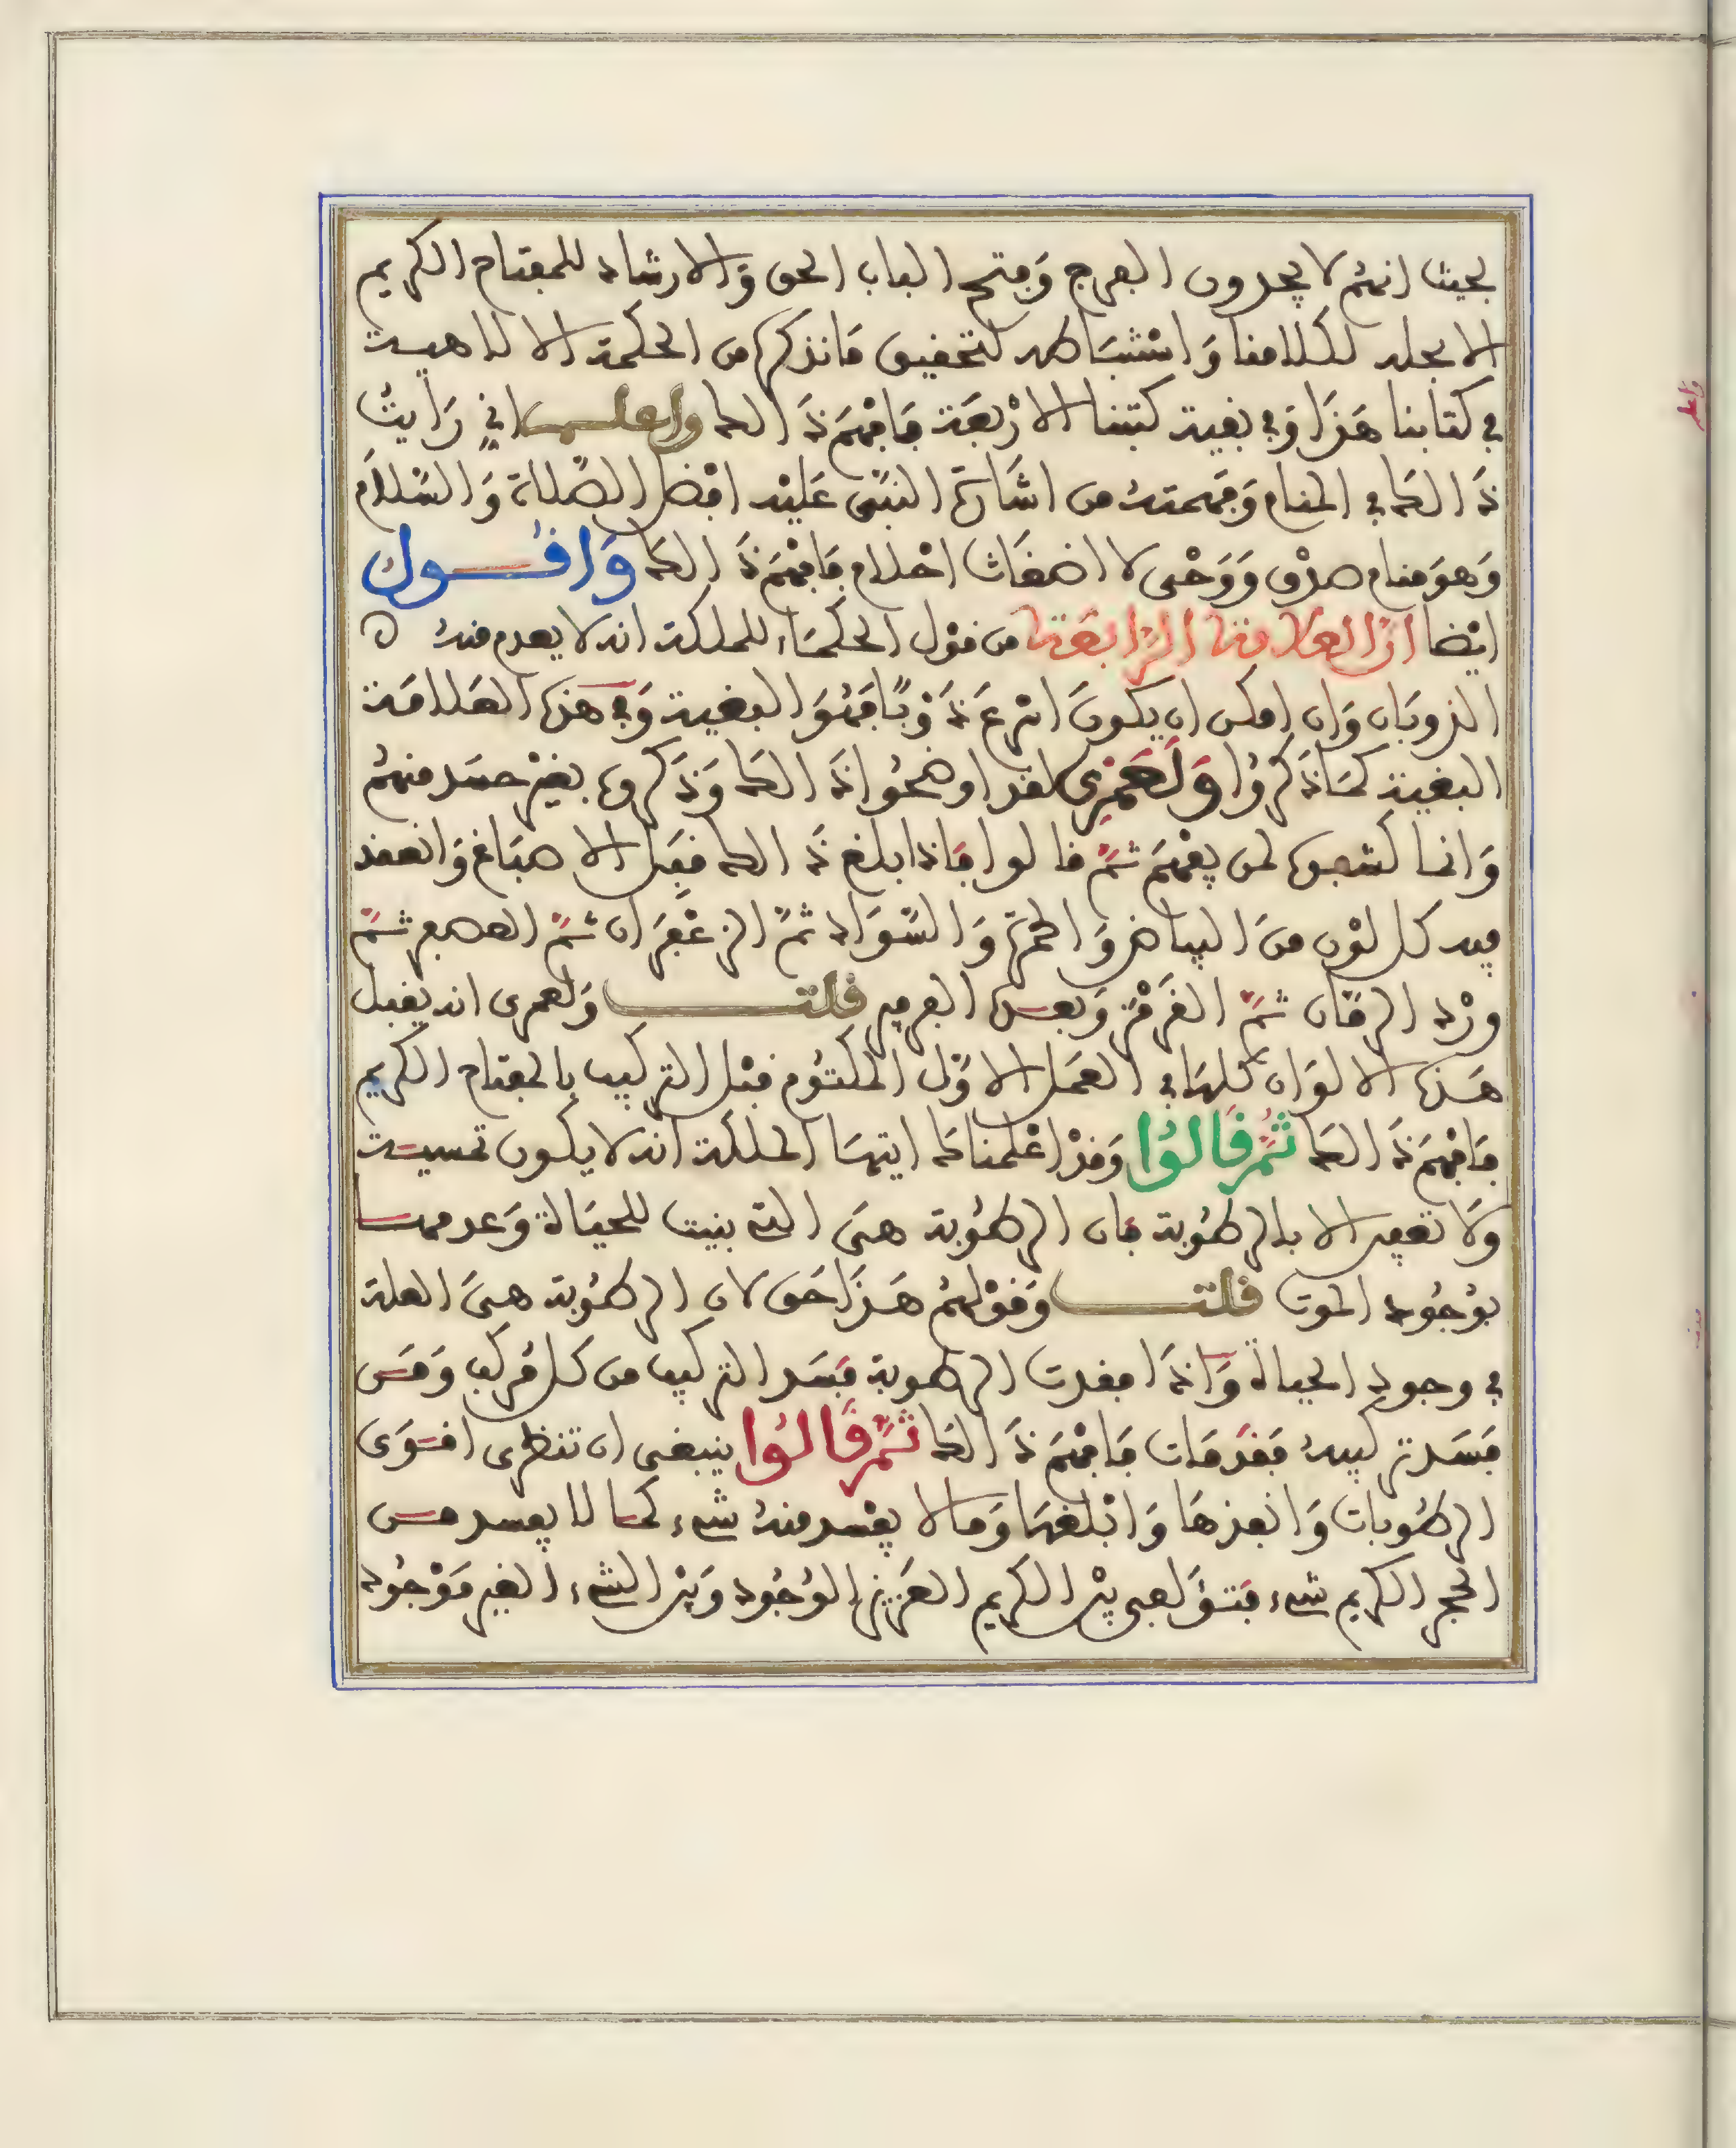 بحيث انهم لا يجدون الفرج وفتح الباب الحق والارشاد للمفتاح الكريم
الا بجلد لكلامنا و لتحقيق ما نذكره من الحكمة الالاهية
في كتابنا هذا وفي بقية كتبنا الاربعة فافهم ذالك واعلم اني رايت
ذالك في المنام وفهمته من اشارة النبي عليه افضل الصلاة والسلام
وهو منام صدق ووحى لا اضغاث احلام فافهم ذالك واقول
ايضا ان العلامة الرابعة من قول الحكماء للملكة انه لا يعدم منه ه
الذوبان وان امكن ان يكون اسرع ذوبا فهو البغية وفي هذه العلامة
البغية كما ذكروا ولعمرى لقد اوضحوا ذالك وذكروه بغير حسد منهم
وانما كشفوه لمن يفهم ثم قالوا فاذا بلغ ذالك فبل الاصباغ وانعقد
فيه كل لون من البياض والحمرة والسواد ثم الزعفران ثم العصفر ثم
ورد الرمان ثم القرمز وبعده الفرفير قلت ولعمرى انه يقبل
هذه الالوان كلها في العمل الاول المكتوم قبل التركيب بالمفتاح الكريم
فافهم ذالك ثم قالوا وقد اعلمناك ايتها الملكة انه لا يكون تمسية
ولا تعفين الا بالرطوبة فان الرطوبة هي التي بنيت للحياة وعدمها
بوجود الموت قلت وقولهم هذا حق لان الرطوبة هي العلة
في وجود الحياة واذا فقدت الرطوبة فسد التركيب من كل مركب ومن
فسد تركيبه فقد مات فافهم ذالك ثم قالوا ينبغى ان تنظرى اقوى
الرطوبات وانفذها وابلغها وما لا يفسد منه شيء كما لا يفسد من
الحجر الكريم شيء فتؤلفى بين الكريم العزيز الوجود وبين الشيء الغير موجود
واعلم